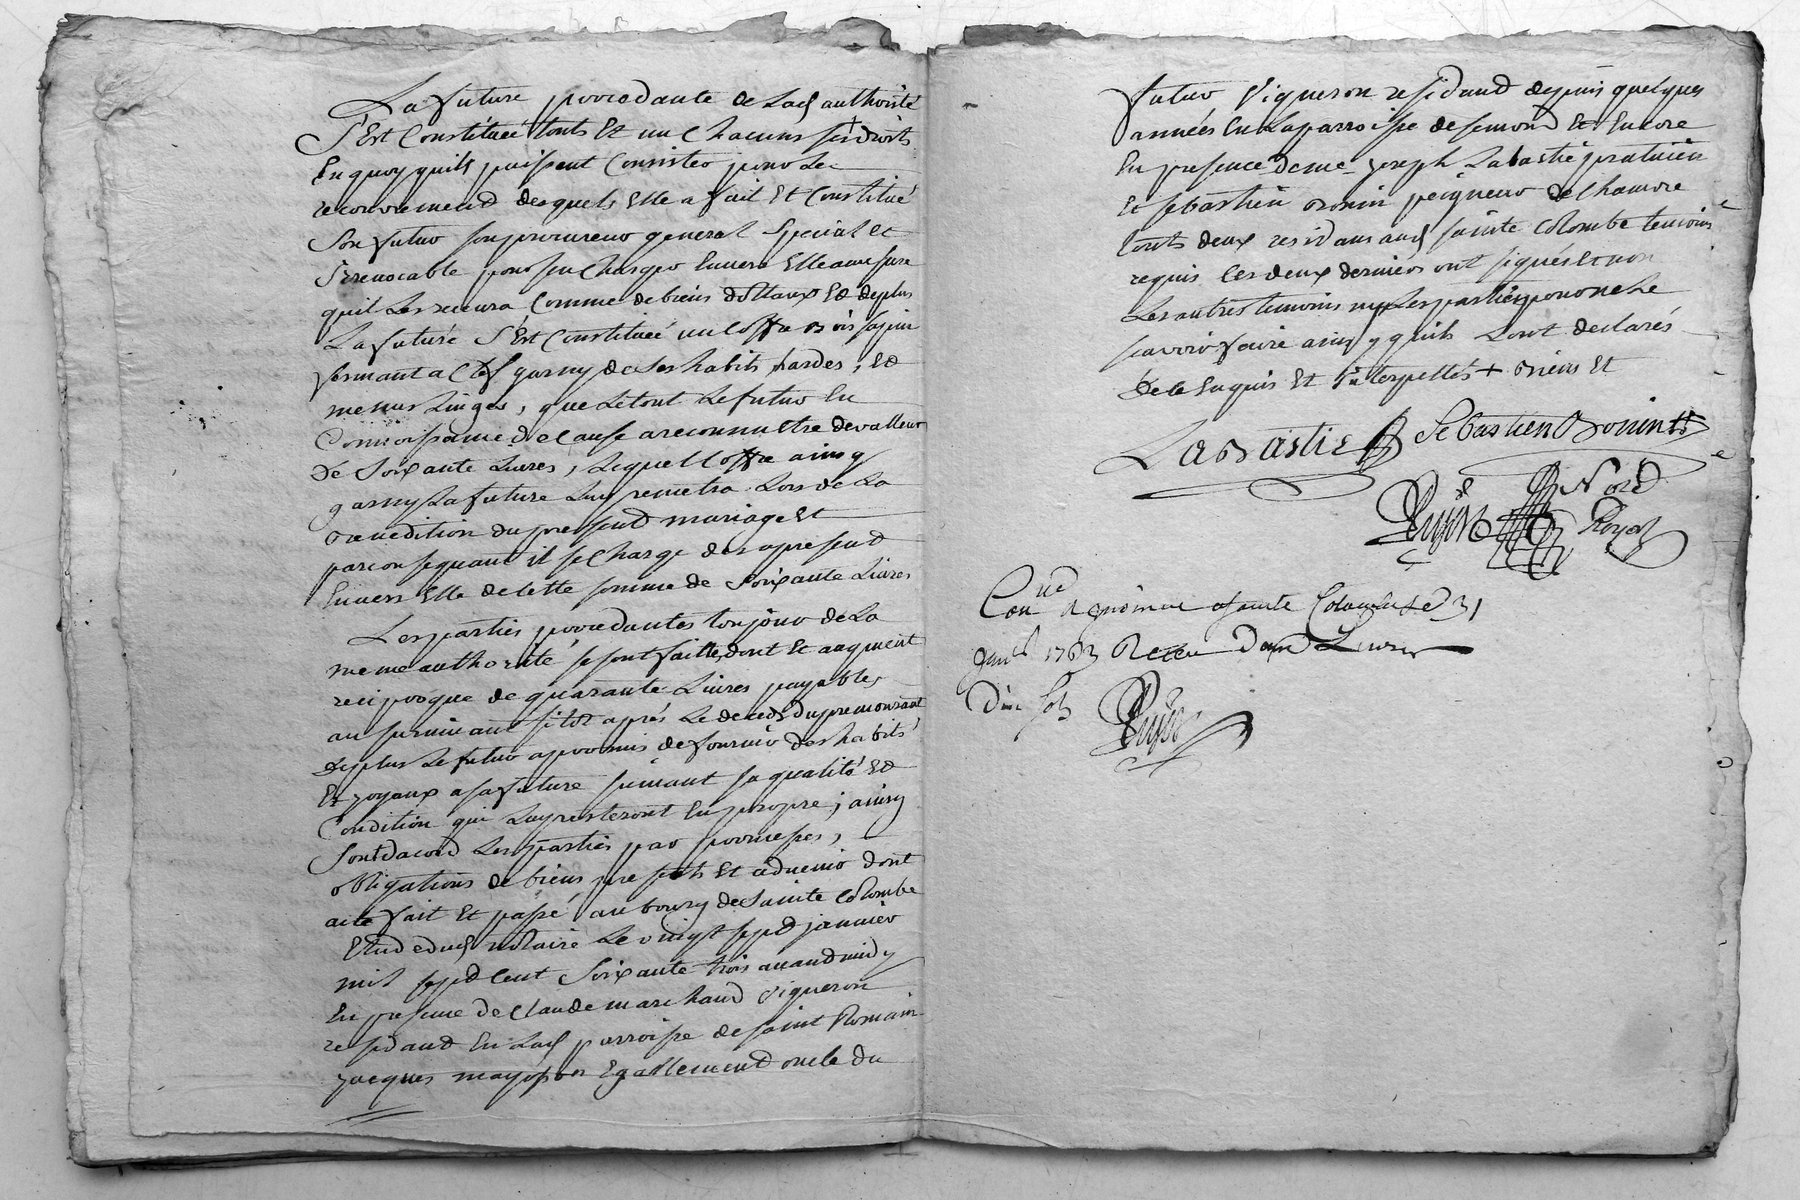 La future procedante de lad authorité
S'Est Constituée touts Et un Chacuns ses droits
En quoy quils puissent Consister pour Le
recouvrement desquels Elle a fait Et Constitué
Son futur son procureur general Special Et
irrevocable pour sen Charger Envers Elle a mesure
quil Les recevra Comme de biens dottaux Et de plus
La future S'Est Constituée un Coffre bois sapin
fermant a Clef garny de ses habits, hardes, Et
menus Linges, que Le tout Le futur En
Connoissance de Cause a reconnu Etre de valleur
De Soixante Livres, Lequel Coffre ainsy
garny La future Luy remettra Lors de La
benediction du present mariage Et
par consequant il se Charge des apresent
Envers Elle de Cette somme de Soixante Livres
Les parties procedantes toujour de La
meme authorité se sont faittes dont Et augment
reciproque de quarante Livres payables
au survivant sitot aprés Le deceds du premourant
de plus Le futur a promis de fournir des habits
Et joyaux a sa future suivant sa qualité Et
Condition qui Luy resteront En propre; ainsy
Sont dacord Les parties par promesses,
obligations de biens presents Et advenir dont
acte fait Et passé au bourg de Sainte Colombe
Etude dud notaire Le vingt sept janvier
mil sept Cent Soixante trois avand midy
En presence de Claude marchand vigneron
residand En Lad parroisse de saint Romain
jacques mayosson Egallement oncle du
futur vigneron residand depuis quelques
années En La parroisse de semond Et Encore
En presence de me joseph Labastie praticien
Et sebastien bonin peigneur de Chanvre
touts deux residans aud sainte Colombe temoins
requis Les deux derniers ont signés Et non
Les autres temoins ny Les parties pour ne Le
scavoir faire ainsy quils L'ont declarés
De ce Enquis Et interpellés + biens Et
Labastie Sebastien Bonin
Nore
Royal
Con.lle A a sainte Colombe Le 31
janv. 1763 Recu Livres
Dix sols